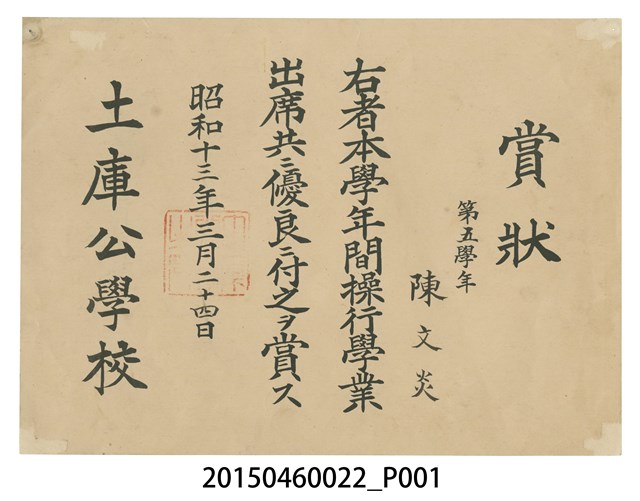 賞狀
第五學年
陳文炎
右者本學年間操行學業
出席共ニ優良ニ付之ヲ賞ス
昭和十三年三月二十四日
土庫公學校
20150460022_P001